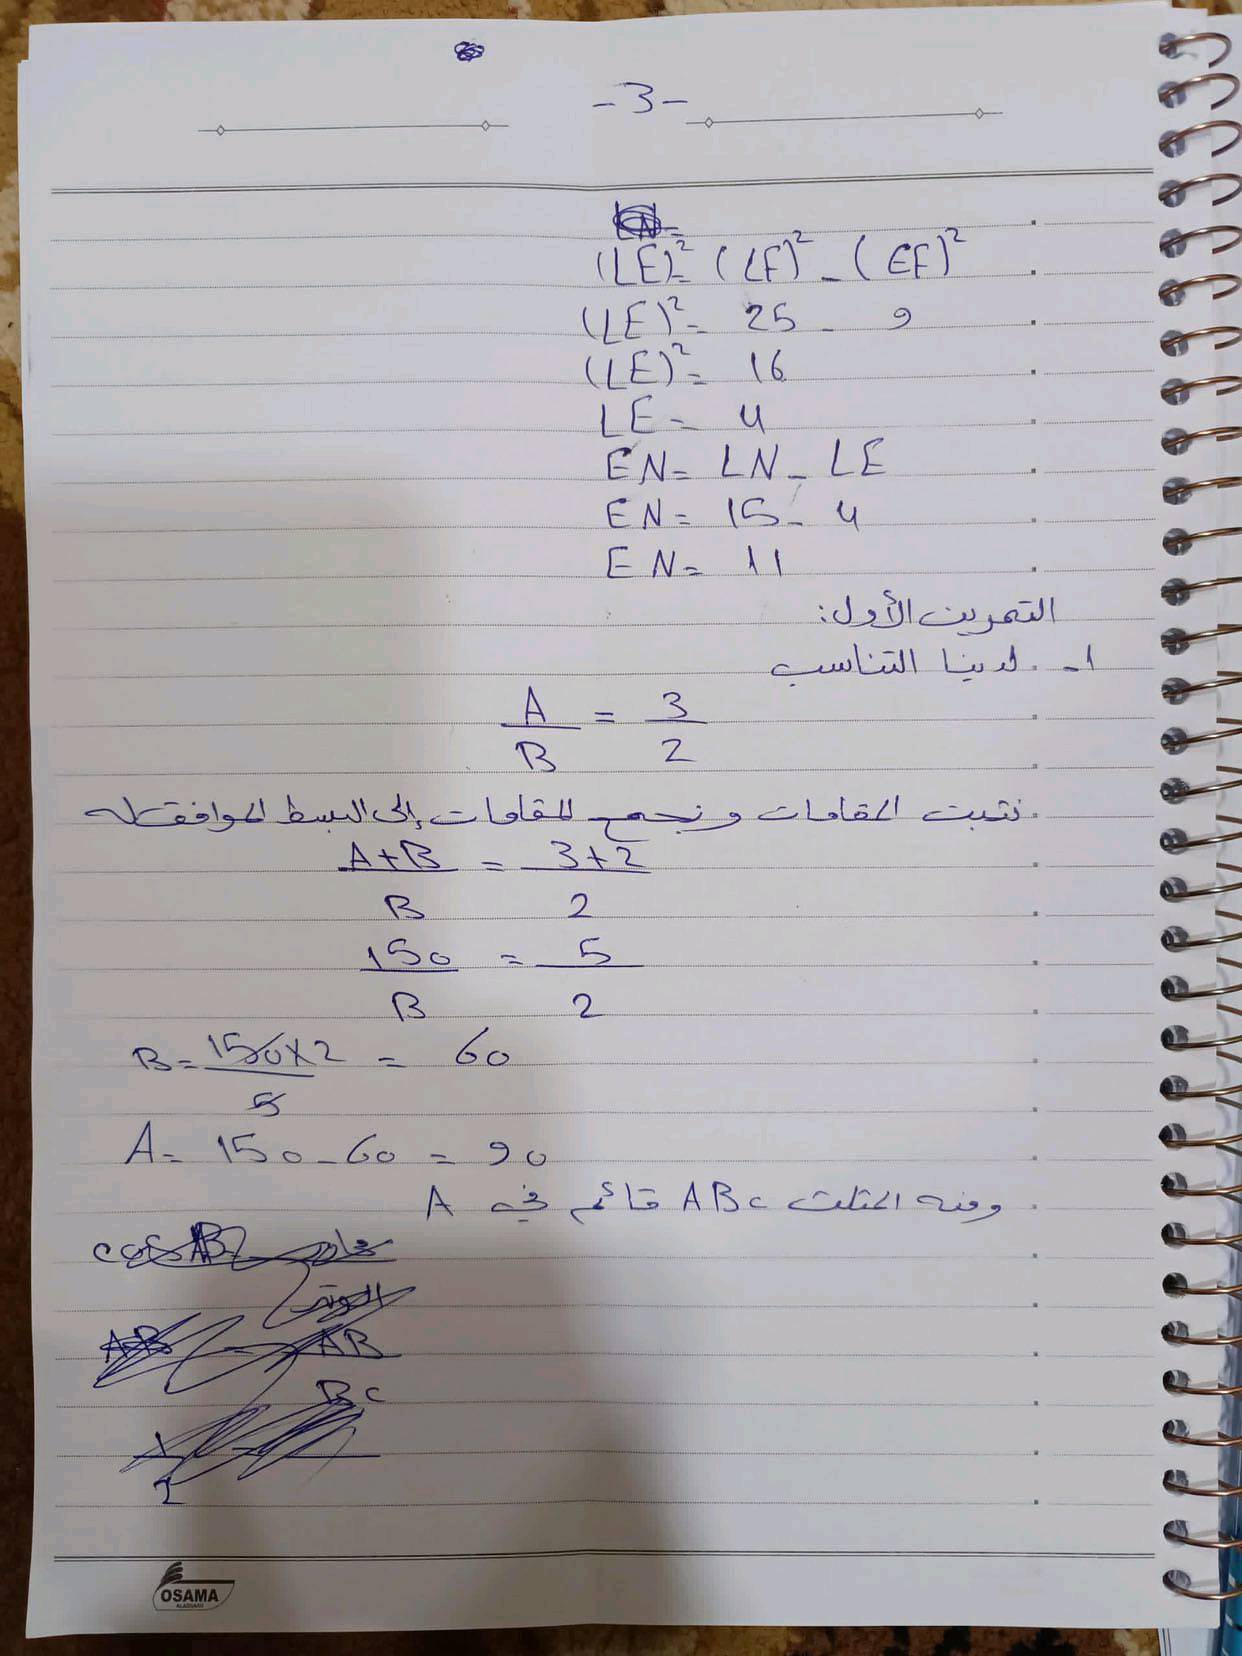 -3-
(LE)² = (LF)² - (EF)²
(LE)² = 25 - 9
(LE)² = 16
LE = 4
EN = LN - LE
EN = 15 - 4
EN = 11
التمرين الأول:
1- لدينا التناسب
A/B = 3/2
نثبت المقامات و نجمع المقامات إلى البسط الموافق له
A+B/B = 3+2/2
150/B = 5/2
B = 150×2/5 = 60
A = 150 - 60 = 90
ومنه المثلث ABC قائم في A
AB
BC
2
OSAMA